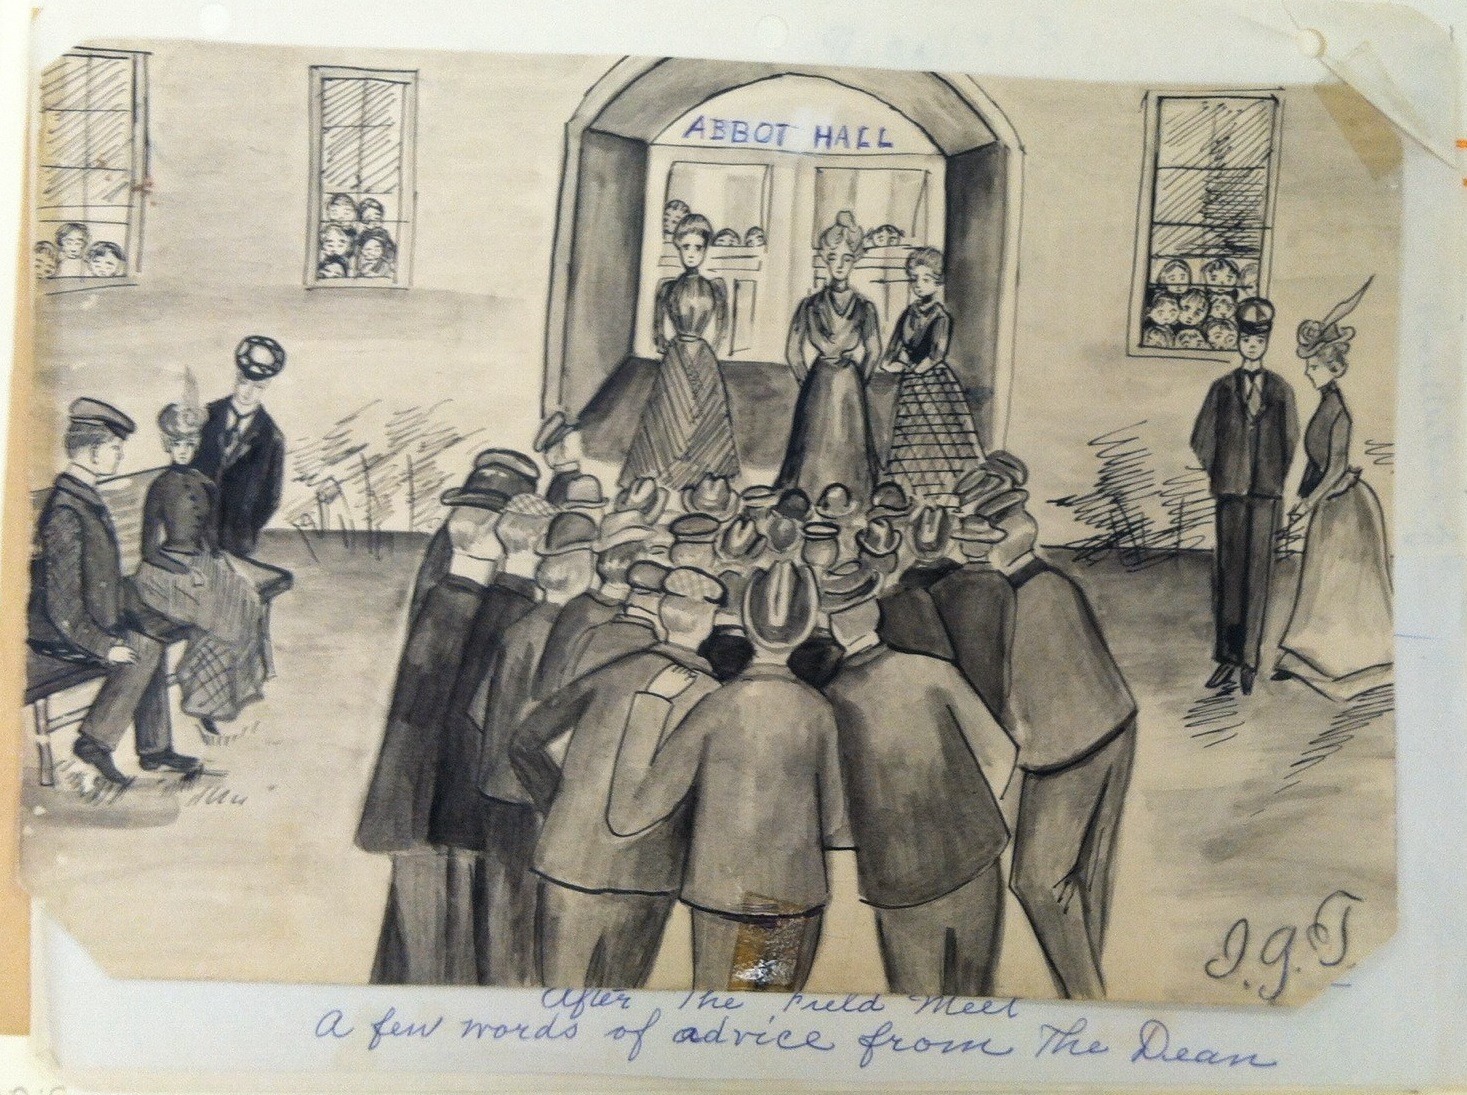 ABBOT HALL
J.G.T.
After The Field Meet
A few words of advice from The Dean